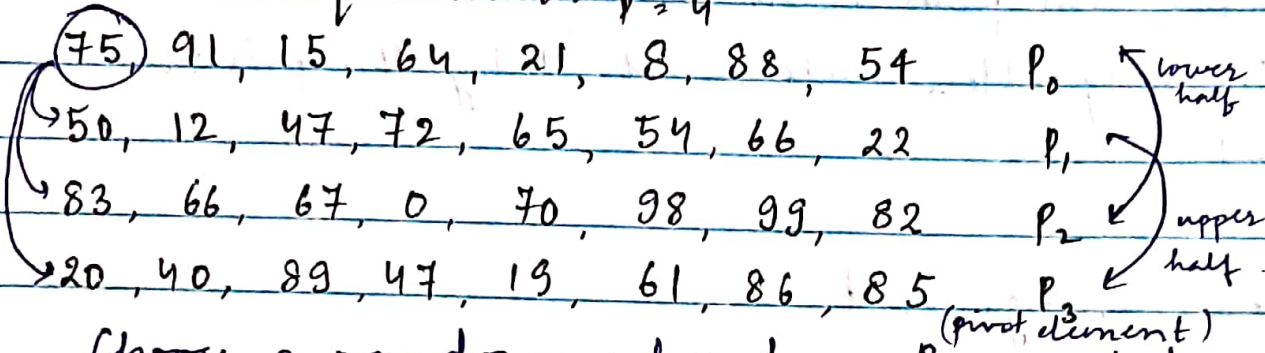 p = 4
75, 91, 15, 64, 21, 8, 88, 54 P0 lower half
50, 12, 47, 72, 65, 54, 66, 22 P1
83, 66, 67, 0, 70, 98, 99, 82 P2 upper half
20, 40, 89, 47, 19, 61, 86, 85 P3
(pivot element)